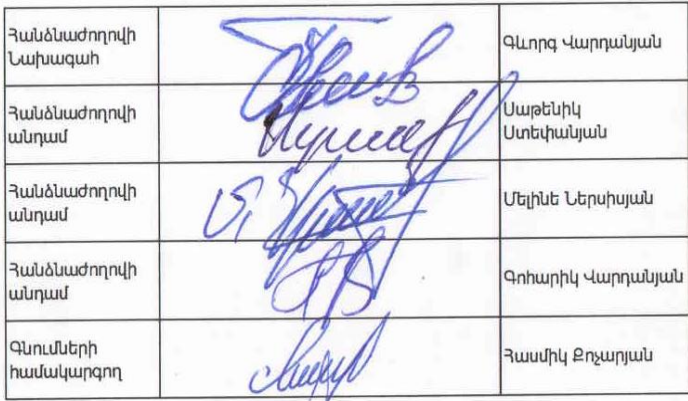 Հանձնաժողովի
Նախագահ
Գևորգ Վարդանյան
Հանձնաժողովի
անդամ
Սաթենիկ
Ստեփանյան
Հանձնաժողովի
անդամ
Մելինե Ներսիսյան
Հանձնաժողովի
անդամ
Գոհարիկ Վարդանյան
Գնումների
համակարգող
Հասմիկ Քոչարյան